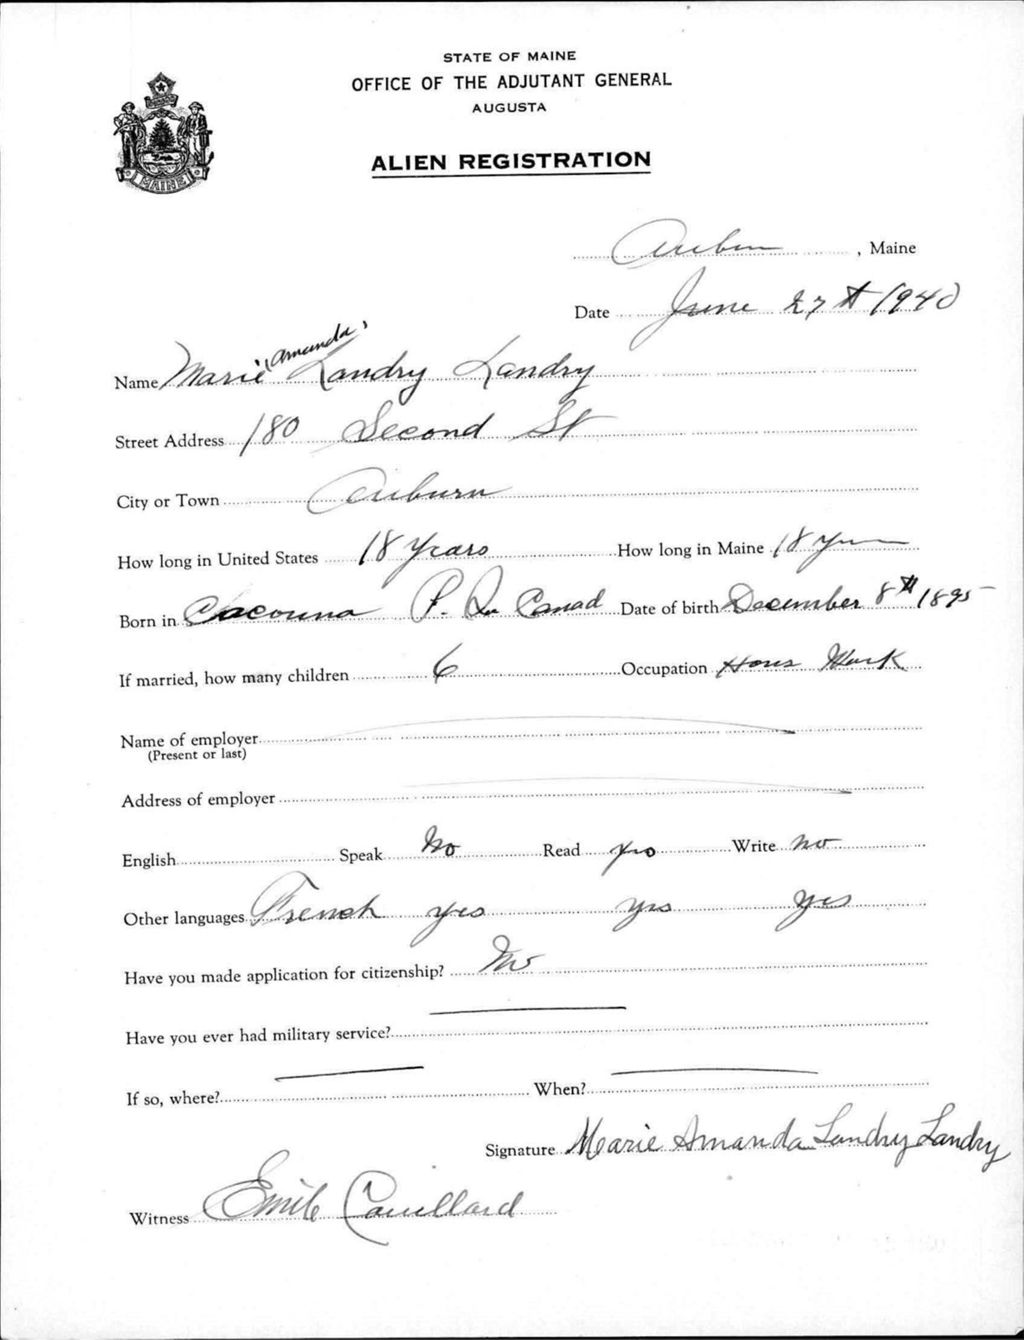 STATE OF MAINE
OFFICE OF THE ADJUTANT GENERAL
AUGUSTA
ALIEN REGISTRATION
MAINE
Auburn, Maine
Date June 27th 1940
Name Marie (Amanda) Landry Landry
Street Address 180 Second St
City or Town Auburn
How long in United States 18 Years How long in Maine 18 Years
Born in Cacouna P. Qu Canad Date of birth December 8th 1895
If married, how many children 6 Occupation Hous Work
Name of employer
(Present or last)
Address of employer
English Speak No Read yes Write No
Other languages French yes yes yes
Have you made application for citizenship? No
Have you ever had military service?
If so, where? When?
Signature Marie Amanda Landry Landry
Witness Emile Couillard